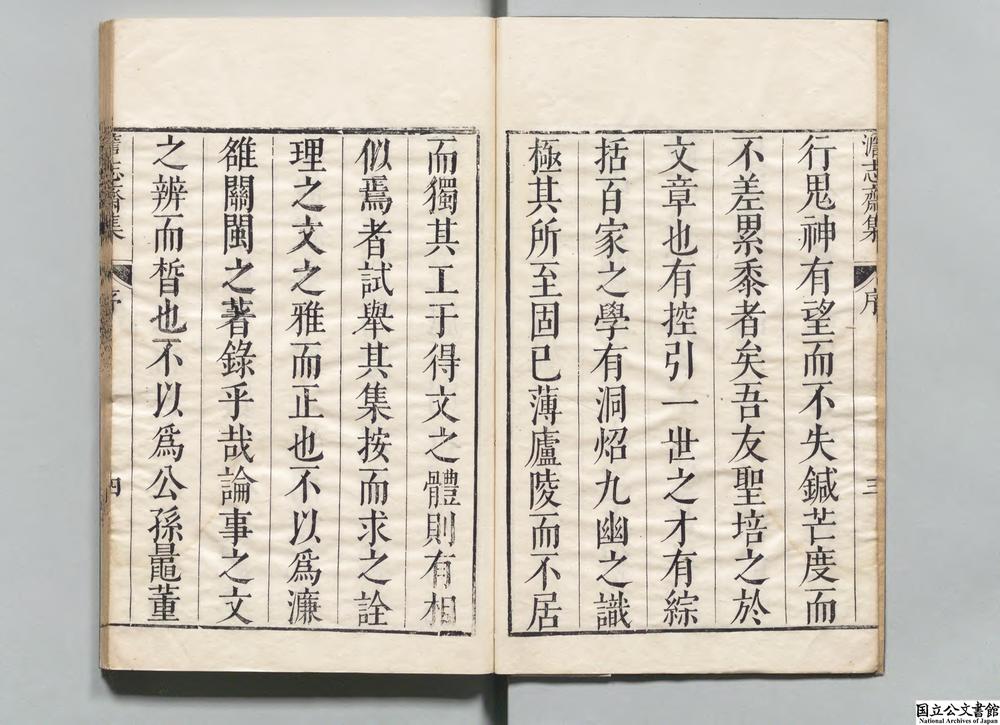 澹志齋集
序
三
行鬼神有望而不失鍼芒度而
不差累黍者矣吾友聖培之於
文章也有控引一世之才有綜
括百家之學有洞炤九幽之識
極其所至固已薄廬陵而不居
而獨其工于得文之體則有相
似焉者試舉其集按而求之詮
理之文之雅而正也不以爲濂
雒關閩之著錄乎哉論事之文
之辨而晳也不以爲公孫鼂董
澹志齋集
序
四
国立公文書館
National Archives of Japan